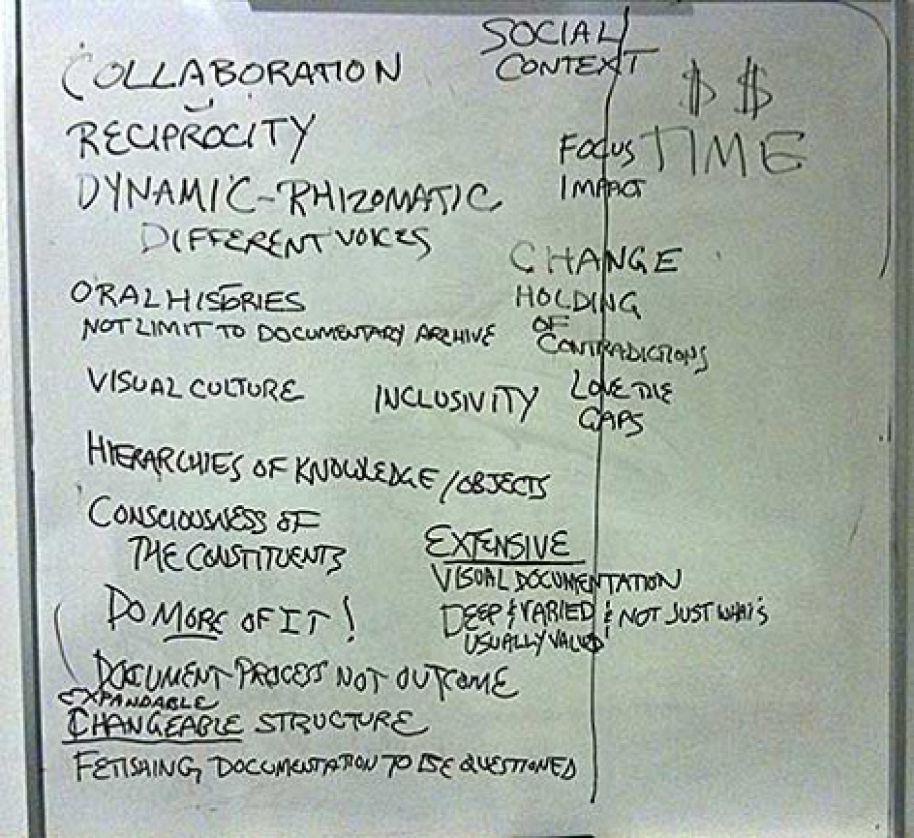 COLLABORATION
RECIPROCITY
DYNAMIC-RHIZOMATIC
DIFFERENT VOICES
ORAL HISTORIES
NOT LIMIT TO DOCUMENTARY ARCHIVE
VISUAL CULTURE
INCLUSIVITY
HIERARCHIES OF KNOWLEDGE/OBJECTS
CONSCIOUSNESS OF
THE CONSTITUENTS
DO MORE OF IT!
DOCUMENT PROCESS NOT OUTCOME
EXPANDABLE
CHANGEABLE STRUCTURE
FETISHING DOCUMENTATION TO BE QUESTIONED
SOCIAL/
CONTEXT
$ $
FOCUS TIME
IMPACT
CHANGE
HOLDING
OF
CONTRADICTIONS
LOVE THE
GAPS
EXTENSIVE
VISUAL DOCUMENTATION
DEEP & VARIED & NOT JUST WHAT'S
USUALLY VALUED